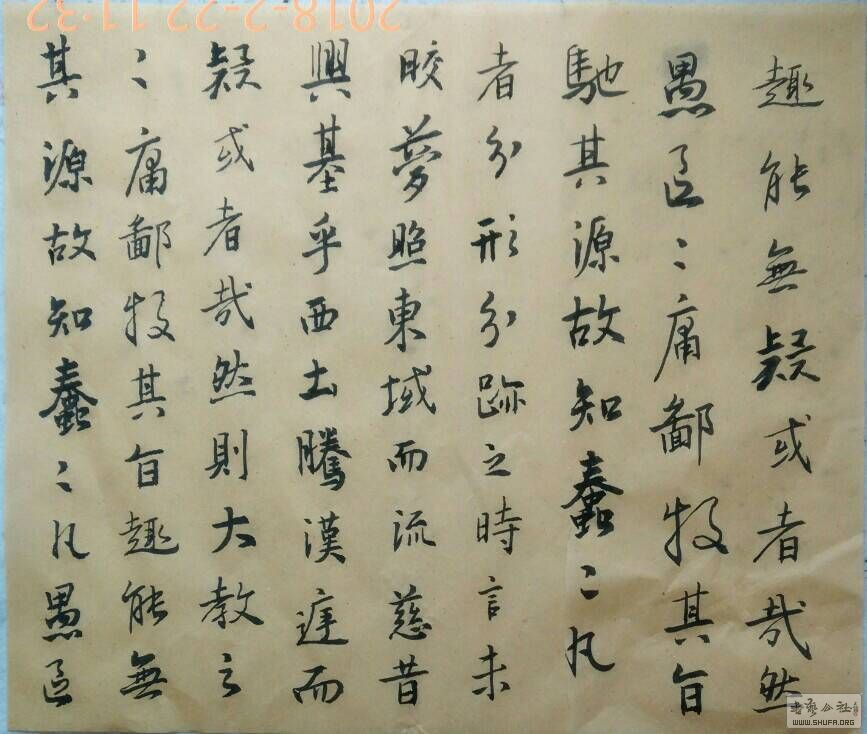 趣能無疑或者哉然
愚區〻庸鄙投其旨
馳其源故知蠢〻凡
者分形分跡之時言未
晈夢照東域而流慈昔
興基乎西土騰漢庭而
疑或者哉然則大教之
〻庸鄙投其旨趣能無
其源故知蠢〻凡愚區
2018-2-22 11:32
书艺公社
WWW.SHUFA.ORG